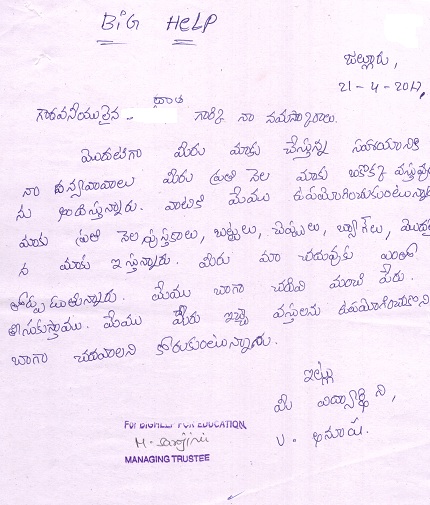 BIG HELP
జల్లూరు,
21-4-2017,
గౌరవనీయులైన దాత గారికి నా నమస్కారాలు.
మొదటిగా మీరు మాకు చేస్తున్న సహాయానికి
నా ధన్యవాదాలు మీరు ప్రతి నెల మాకు ఒకొక్క వస్తువు
ను అందిస్తున్నారు. వాటికి మేము ఉపయోగించుకుంటున్నాం
మాకు ప్రతి నెల పుస్తకాలు, బట్టలు, చెప్పులు, బ్యాగ్‌లు, మొదలై
న మాకు ఇస్తున్నారు. మీరు మా చదువుకు ఎంతో
తోడ్పడుతున్నారు. మేము బాగా చదివి మంచి పేరు.
తీసుకుస్తాము. మేము మీరు ఇచ్చె వస్తులను ఉపయోగించుకొని
బాగా చదవాలని కోరుకుంటున్నాను.
ఇట్లు
మీ విద్యార్థిని,
U. అనూష.
For BIGHELP FOR EDUCATION
MANAGING TRUSTEE